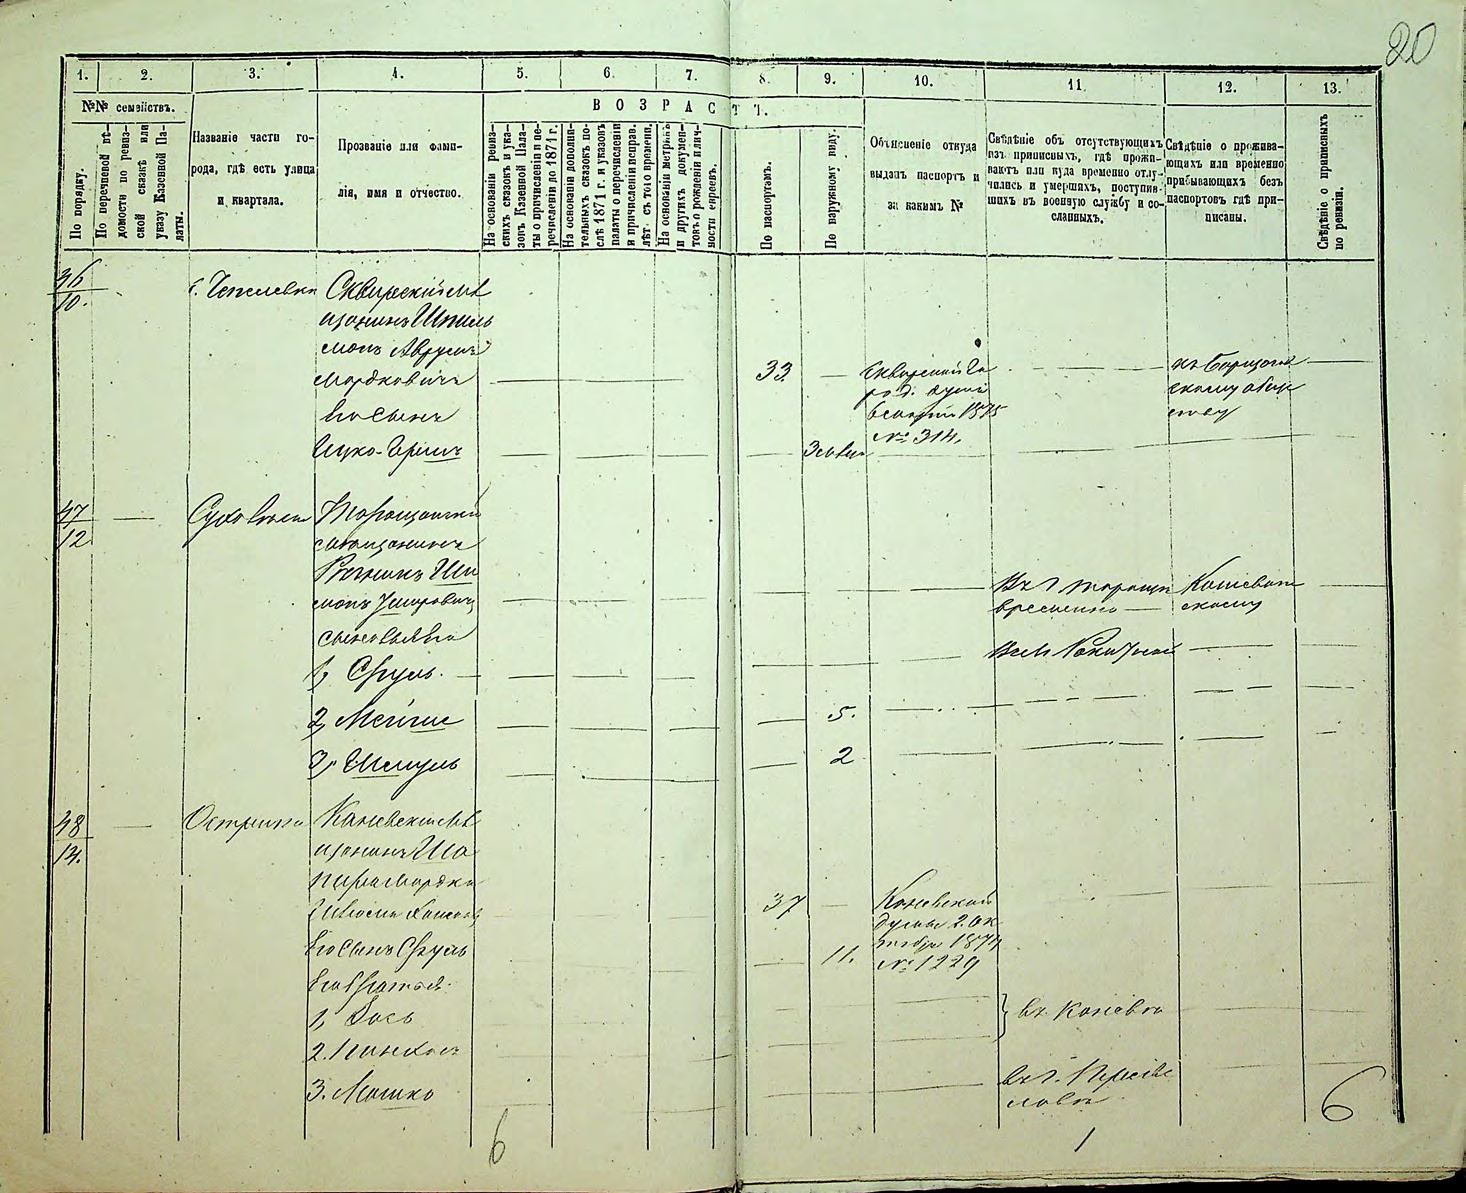 20
1. 2. 3. 4. 5. 6. 7. 8. 9. 10. 11. 12. 13.
№№ семействъ.
По порядку.
По перечневой вѣ-
домости по ревиз-
ской сказкѣ или
указу Казенной Па-
латы.
Названіе части го-
рода, гдѣ есть улица
и квартала.
Прозваніе или фами-
лія, имя и отчество.
ВОЗРАСТЪ.
На основаніи ревиз-
скихъ сказокъ и ука-
зовъ Казенной Пала-
ты о причисленіи и пе-
речисленіи до 1871 г.
На основаніи дополни-
тельныхъ сказокъ по-
слѣ 1871 г. и указовъ
палаты о перечисленіи
и причисленіи исправ.
лѣтъ съ того времени.
На основаніи метрикъ
и другихъ докумен-
товъ о рожденіи и лич-
ности евреевъ.
По паспортамъ.
По наружному виду.
Объясненіе откуда
выданъ паспортъ и
за какимъ №
Свѣдѣніе объ отсутствующихъ
изъ приписныхъ, гдѣ прожи-
ваютъ или куда временно отлу-
чились и умершихъ, поступив-
шихъ въ военную службу и со-
сланныхъ.
Свѣдѣніе о прожива-
ющихъ или временно
прибывающихъ безъ
паспортовъ гдѣ при-
писаны.
Свѣдѣніе о приписныхъ
по ревизіи.
46
10.
с. Чепелевка
Сквирскій мѣ
щанинъ Шпиль
манъ Аврумъ
Мордковичъ
33
Сквирской Го
род. думы
1875
№ 314.
Его сынъ
Ицко-Гершъ
47
12
Таращанскій
мѣщанинъ
сыновья его
1, Сруль
2, Мейше
5.
3, Шмуль
2
48
14.
Каневскій мѣ
щанинъ Ша
пира Мордко
37
Каневской
думы 2 Ок
тября 1874
№ 1229
Его сынъ Сруль
11.
Его братья
1, Лось
въ Каневѣ
2. Пинхасъ
3. Мошко
въ г. Переяс
лавѣ
6
1
6